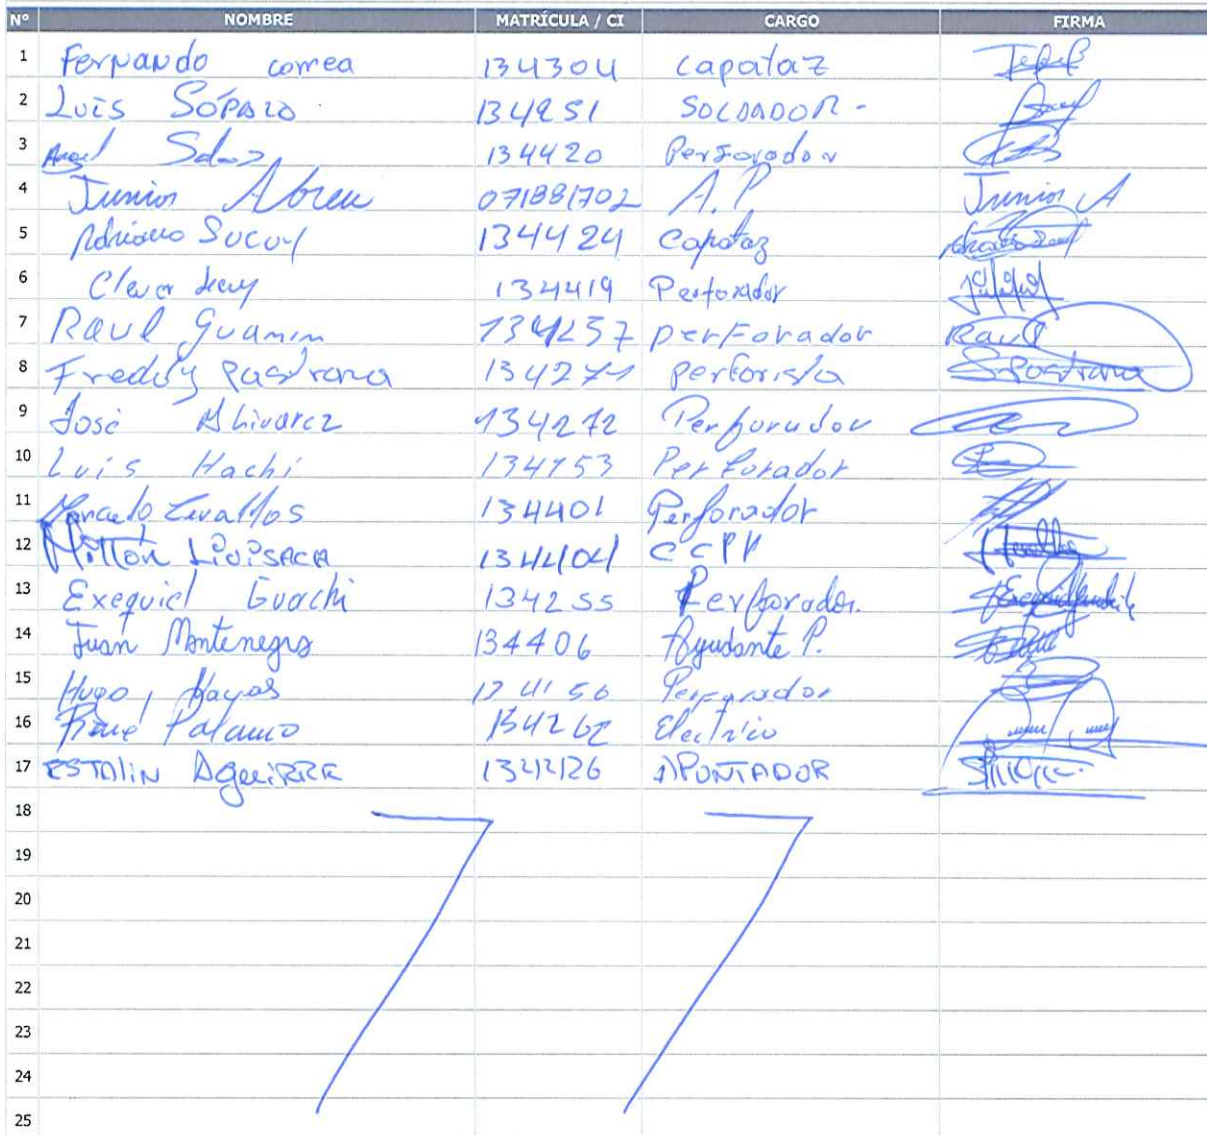 Nº NOMBRE MATRÍCULA / CI CARGO FIRMA
1 Fernando correa 134304 capataz
2 Luis 134251 SOLDADOR-
3 Angel Salas 134420 Perforador
4 Junior Abreu 071881702 A.P. Junior A
5 Adriano Sucuy 134424 Capataz
6 Clever 134419 Perforador
7 Raul Guamin 134257 perforador Raul
8 Freddy Pastrana 134271 perforista Pastrana
9 José 134272 Perforador
10 Luis Hachi 134753 Perforador
11 Marcelo Zevallos 134401 Perforador
12 Milton Livisaca 134404 CCPP
13 Exequiel Guachi 134255 Perforador.
14 Juan Montenegro 134406 Ayudante P.
15 Hugo, Hayas Perforador
16 134262 Electrico
17 ESTALIN AGUIRRE APUNTADOR
18
19
20
21
22
23
24
25